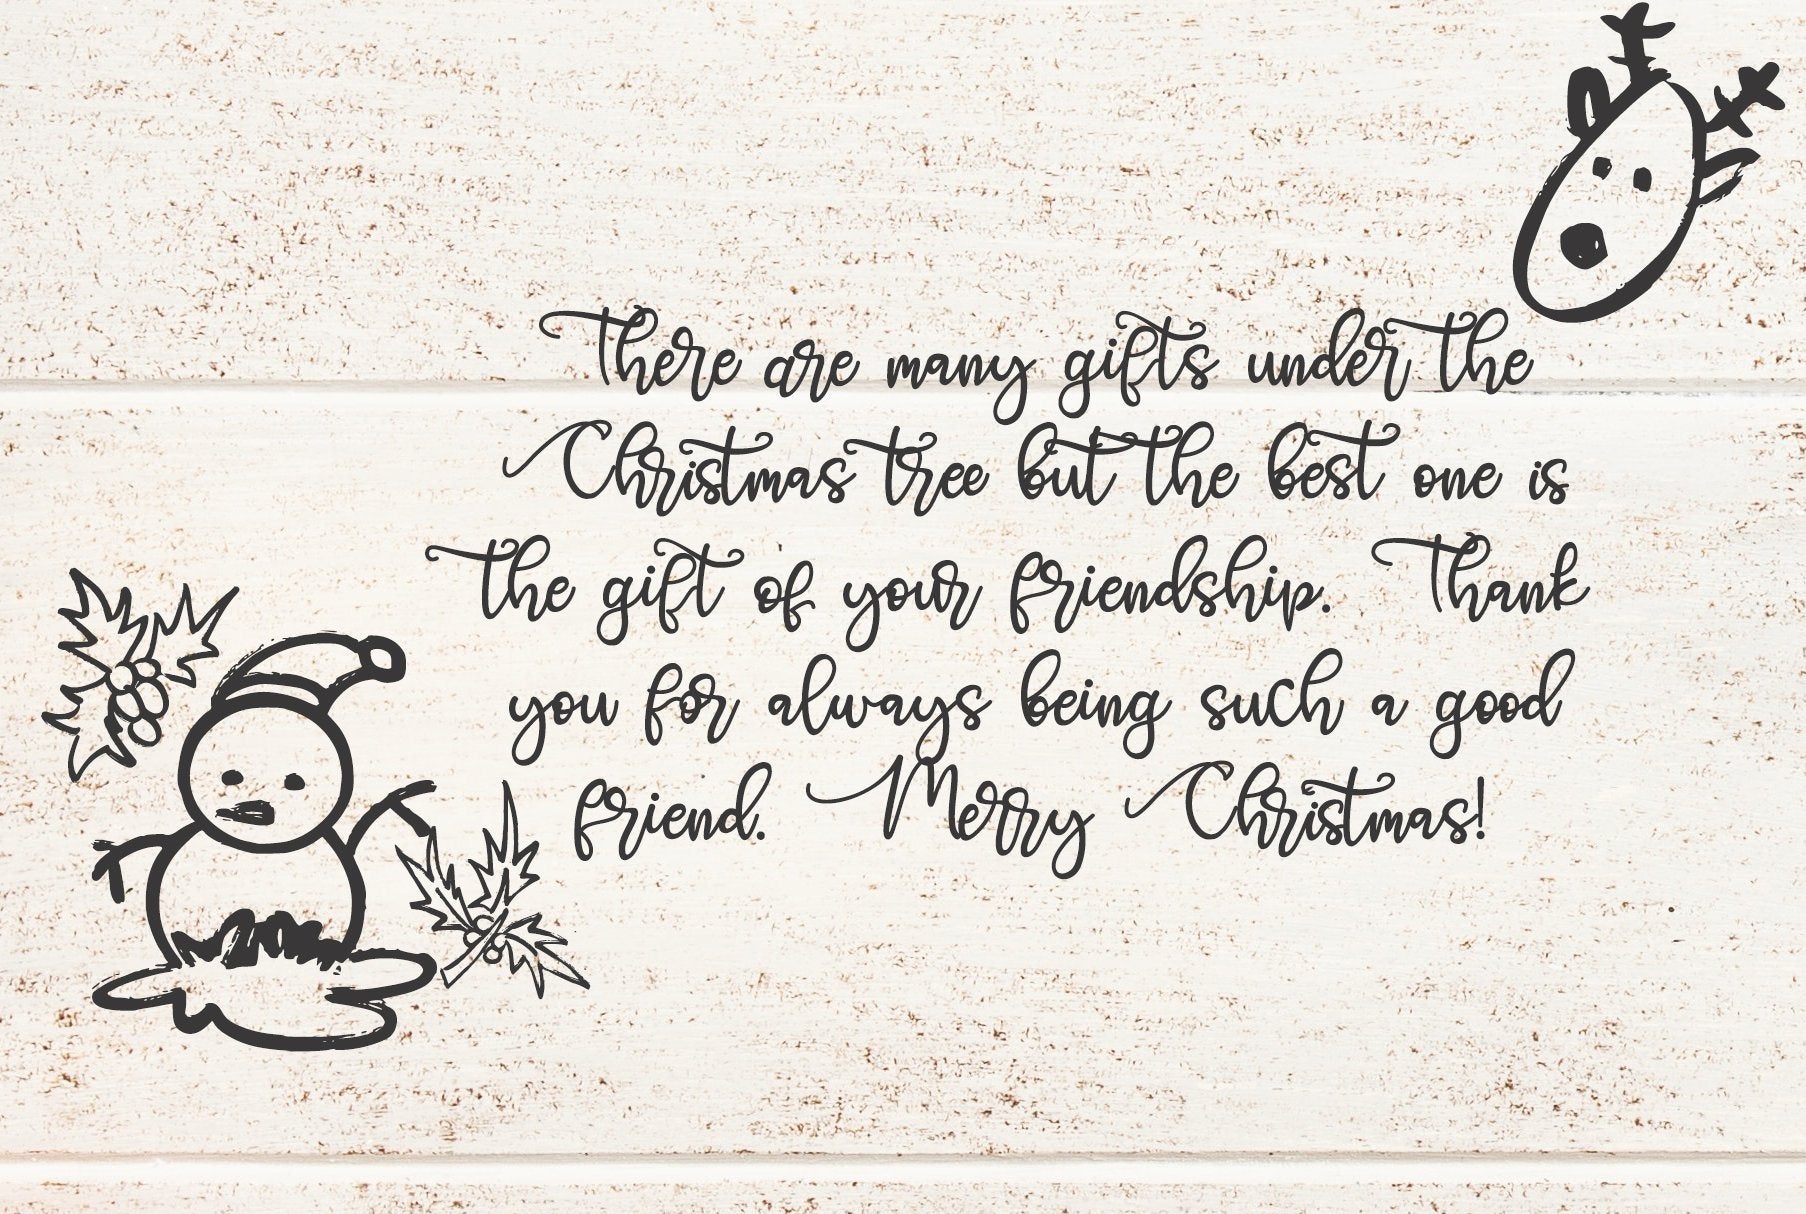 There are many gifts under the
Christmas tree but the best one is
the gift of your friendship. Thank
you for always being such a good
friend. Merry Christmas!